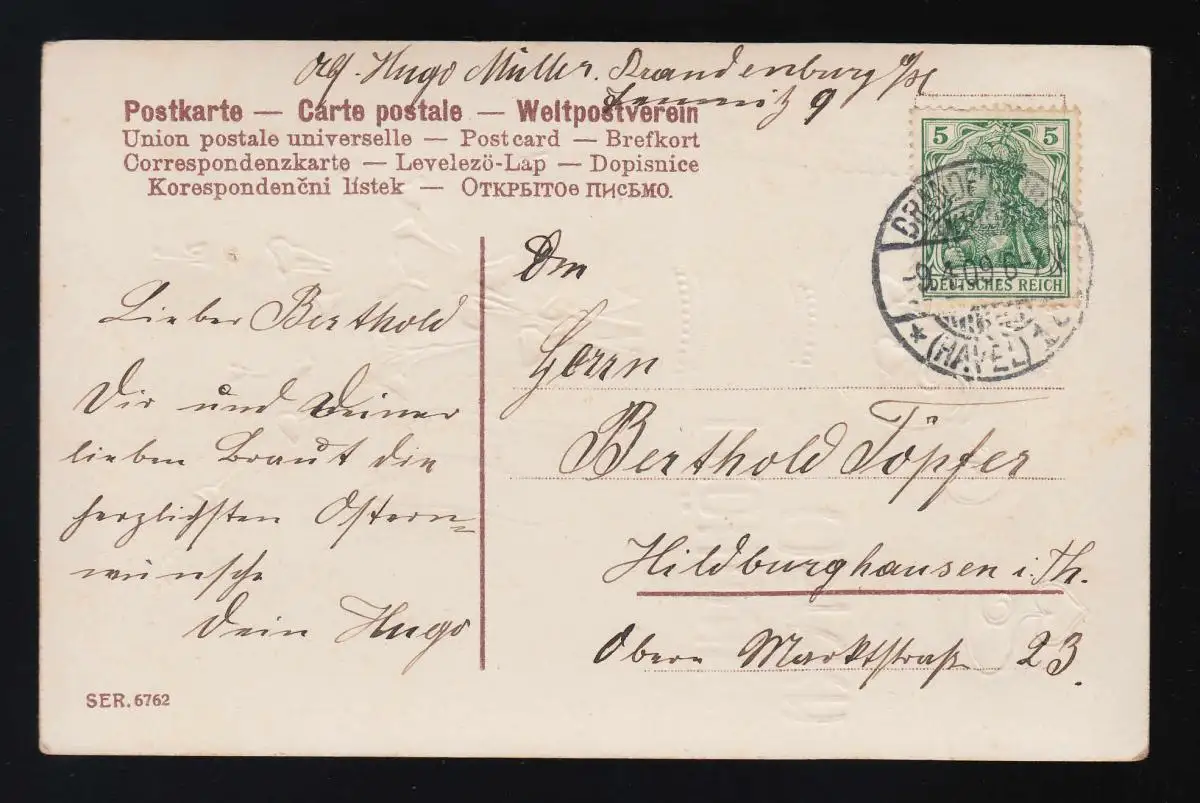 Hugo Müller. Brandenburg a/H
9
Postkarte — Carte postale — Weltpostverein
Union postale universelle — Postcard — Brefkort
Correspondenzkarte — Levelezö-Lap — Dopisnice
Korespondenčni lístek — Открытое письмо.
5 5
DEUTSCHES REICH
BRANDENBURG
9.4.09.6-7
* (HAVEL) 1
Lieber Berthold
Dir und Deiner
lieben Braut die
herzlichsten Ostern=
wünsche
Dein Hugo
Den
Herrn
Berthold Töpfer
Hildburghausen i. Th.
Obere Marktstraße 23.
SER. 6762